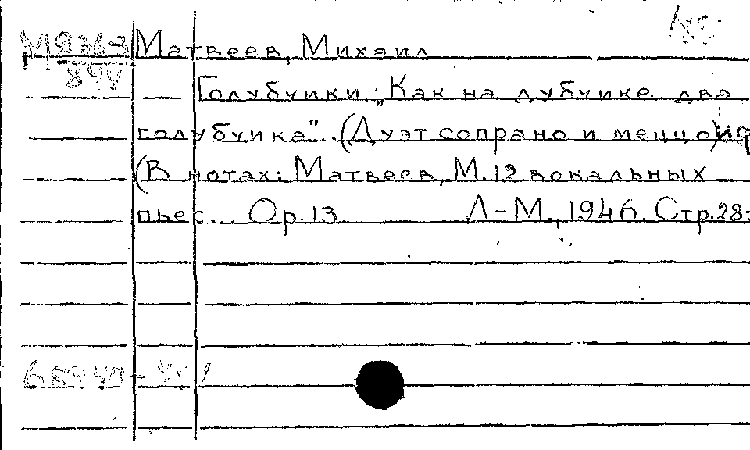 Матвеев, Михаил
Голубчики „Как на дубчике два
голубчика". (Дуэт сопрано и меццо
(В нотах: Матвеев, М. 12 вокальных
пьес... Ор. 13 Л-М., 1946. Стр. 28-